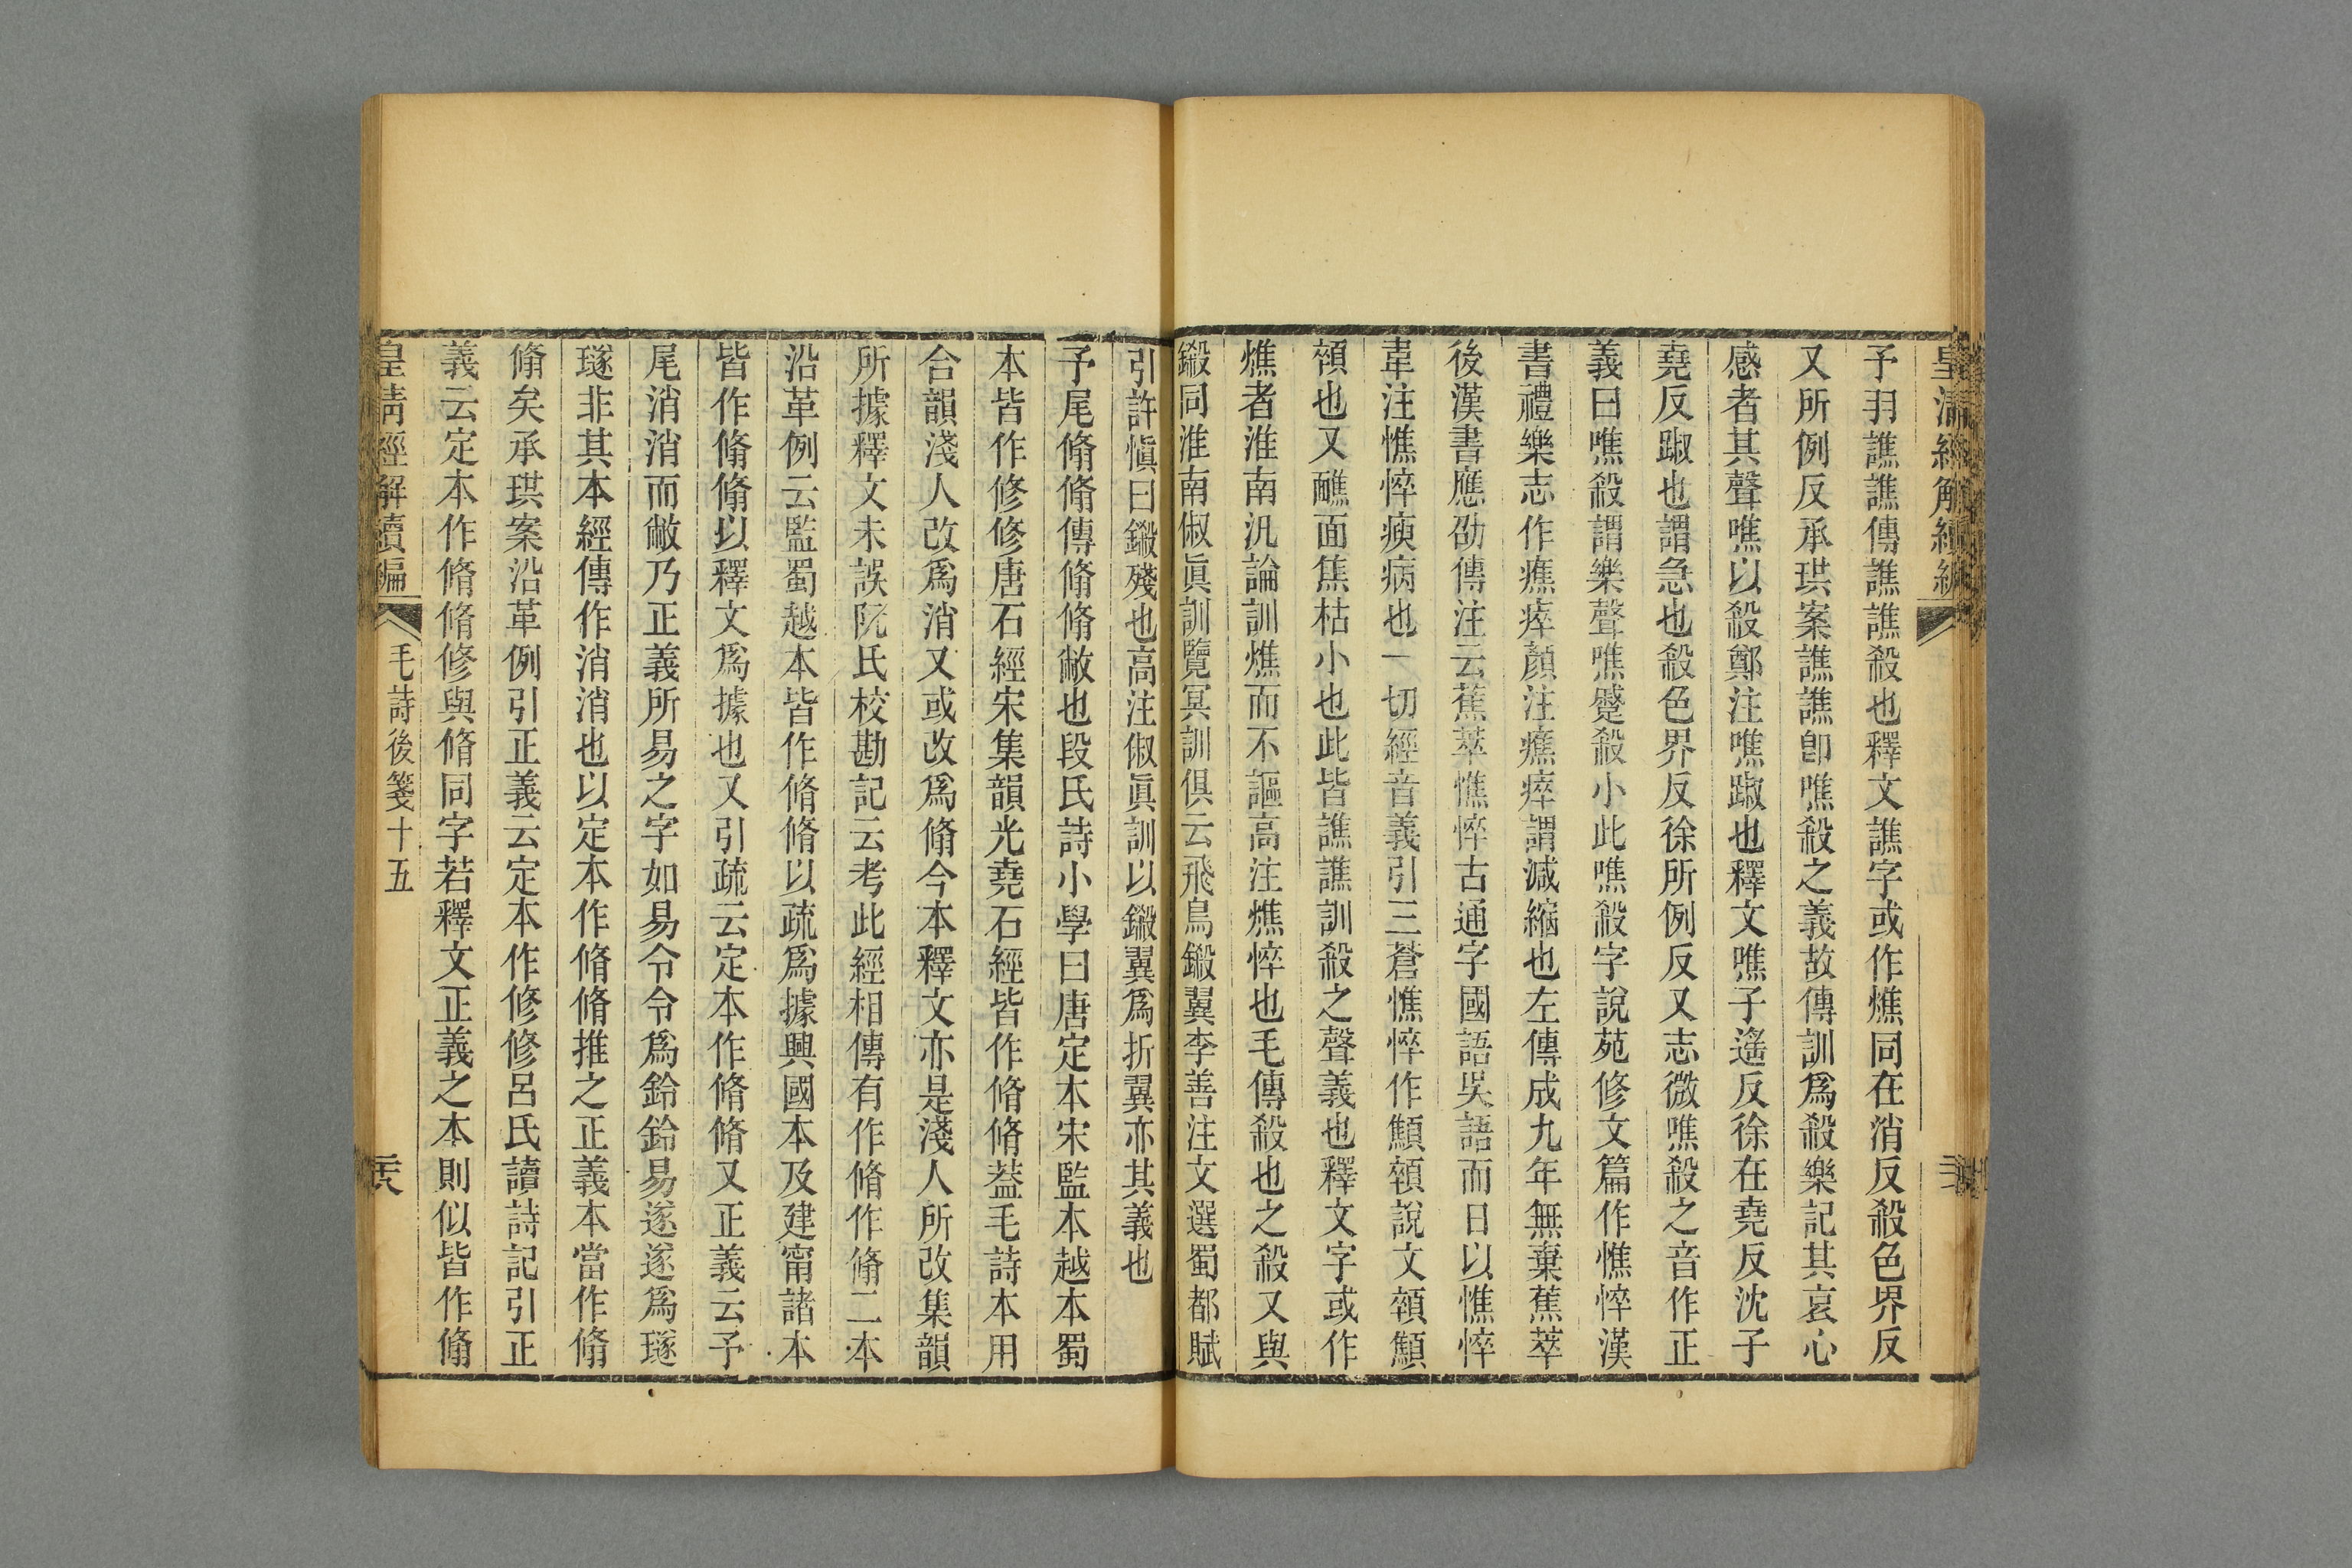 皇清經解續編
予羽譙譙傳譙譙殺也釋文譙字或作燋同在消反殺色界反
又所例反承珙案譙譙卽噍殺之義故傳訓爲殺樂記其哀心
感者其聲噍以殺鄭注噍踧也釋文噍子遙反徐在堯反沈子
堯反踧也謂急也殺色界反徐所例反又志微噍殺之音作正
義曰噍殺謂樂聲噍蹙殺小此噍殺字說苑修文篇作憔悴漢
書禮樂志作癄瘁顏注癄瘁謂減縮也左傳成九年無棄蕉萃
後漢書應劭傳注云蕉萃憔悴古通字國語吳語而日以憔悴
韋注憔悴瘐病也一切經音義引三蒼憔悴作顦顇說文顇顦
顇也又醮面焦枯小也此皆譙譙訓殺之聲義也釋文字或作
燋者淮南汎論訓燋而不謳高注燋悴也毛傳殺也之殺又與
鎩同淮南俶眞訓覽冥訓俱云飛鳥鎩翼李善注文選蜀都賦
引許愼曰鎩殘也高注俶眞訓以鎩翼爲折翼亦其義也
予尾翛翛傳翛翛敝也段氏詩小學曰唐定本宋監本越本蜀
本皆作修修唐石經宋集韻光堯石經皆作脩脩葢毛詩本用
合韻淺人改爲消又或改爲翛今本釋文亦是淺人所改集韻
所據釋文未誤阮氏校勘記云考此經相傳有作脩作翛二本
沿革例云監蜀越本皆作脩脩以疏爲據興國本及建甯諸本
皆作翛翛以釋文爲據也又引疏云定本作脩脩又正義云予
尾消消而敝乃正義所易之字如易令令爲鈴鈴易遂遂爲璲
璲非其本經傳作消消也以定本作脩脩推之正義本當作翛
翛矣承珙案沿革例引正義云定本作修修呂氏讀詩記引正
義云定本作脩脩修與脩同字若釋文正義之本則似皆作翛
皇清經解續編 毛詩後箋十五